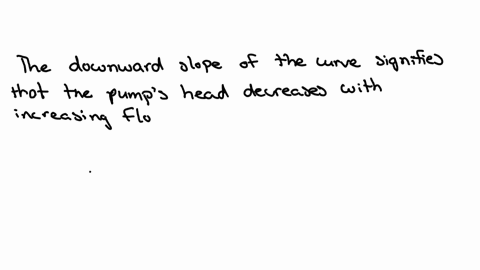 The downward slope of the curve signifies
that the pump's head decreases with
increasing flo